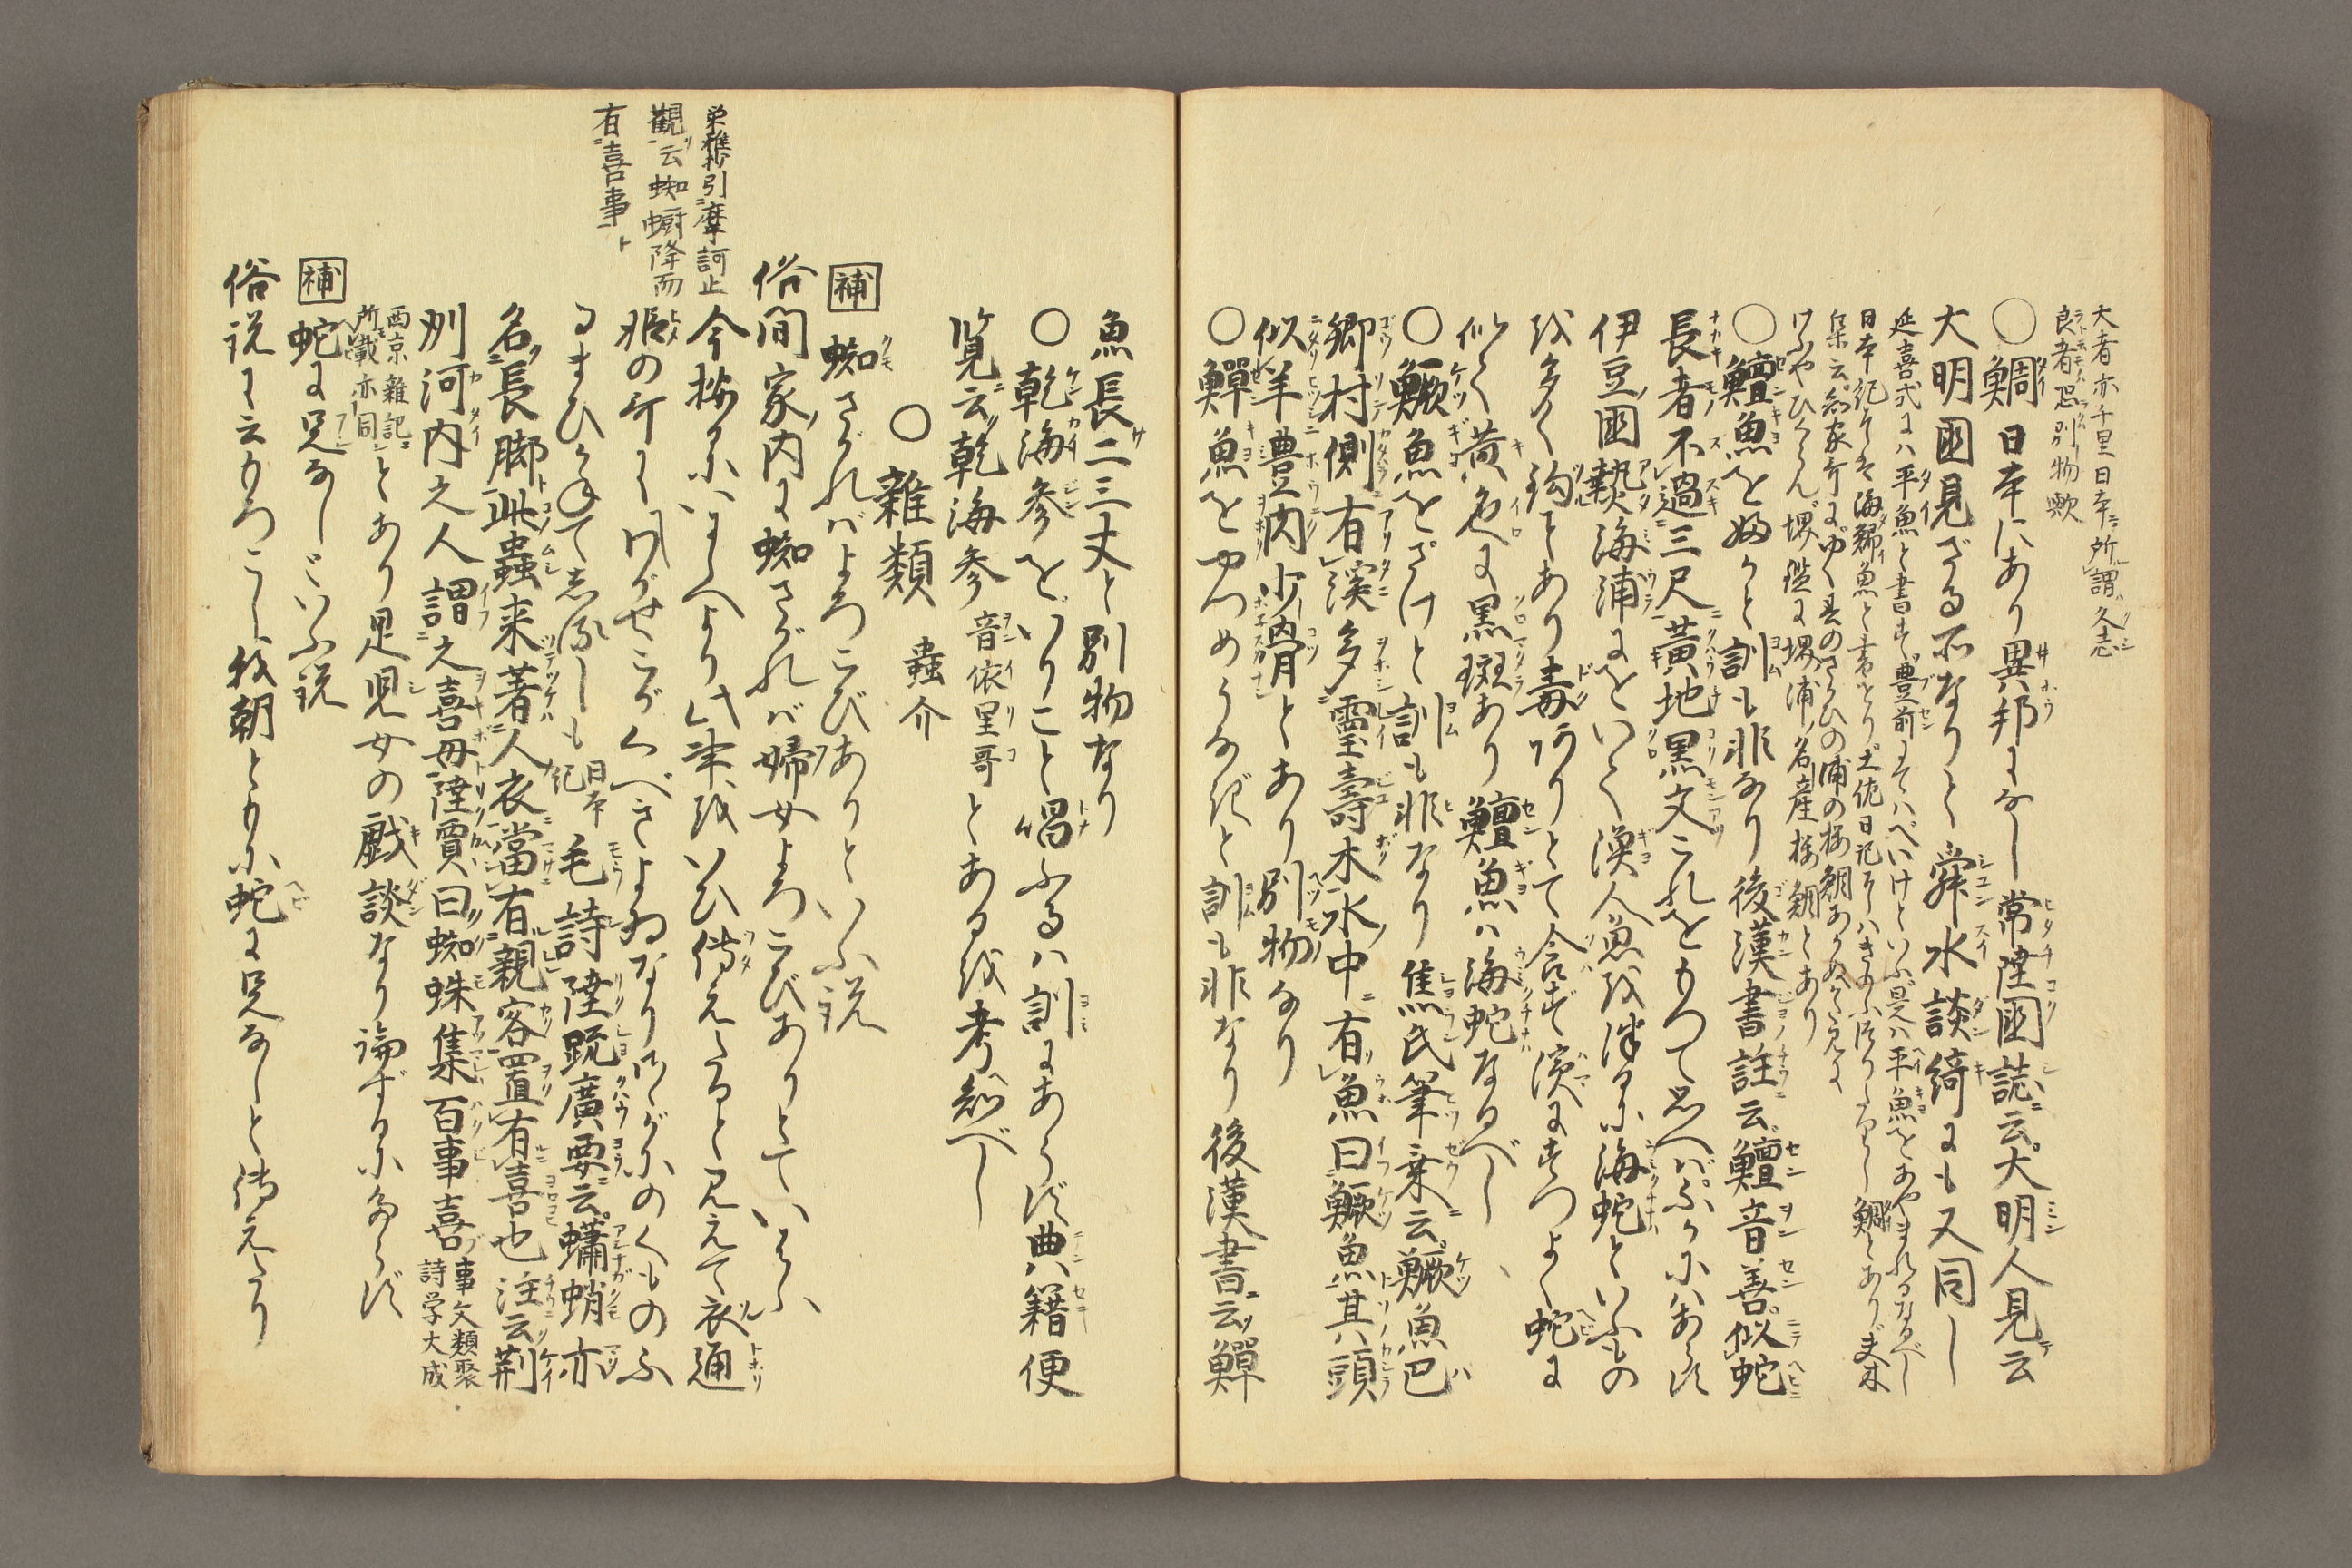 大者亦千里日本ニ所謂久志
良者恐別物歟
〇鯛日本にあり異邦になし常陸國誌云大明人見云
大明國見ざる所なりと舜水談綺にも又同し
延喜式には平魚と書き豊前にてはへいけといふ是は平魚をあやまれるなるべし
日本紀にては海鯽魚と書たり土佐日記にはきのふつりたりし鯛とあり夫木
集云ゆく春のさかひの浦の桜鯛あかぬ
けふやひくらん堺鑑に堺浦ノ名産桜鯛とあり
〇鱣魚をふかと訓も非なり後漢書註云鱣音善似蛇
長者不過三尺黃地黒文これをもつて思へばふかにはあらず
伊豆國熱海浦にをいて漁人魚を津るに海蛇といふもの
を多く鈎とあり毒ありとて舎ず濱にすつよく蛇に
似て黄色に黒斑あり鱣魚ハ海蛇なるべし
〇鱖魚をさけと訓も非なり焦氏筆乗云鱖魚巴
郷村側有溪多靈壽木水中有魚曰鱖魚其頭
似羊豊肉少骨とあり別物なり
〇鱓魚をやつめうなぎと訓も非なり後漢書云鱓
魚長二三丈と別物なり
〇乾海参をいりこと唱ふるハ訓にあらず典籍便
覧云乾海参音依里哥とあるを考知べし
〇雜類 蟲介
補 蜘さがればよろこびありといふ説
俗間家内に蜘さがれば婦女よろこびありとていはふ
今按るにいにしへより此事をいひ傳えたると見えて衣通
姫の哥にわがせこがくべきよゐなりさゝがにのくものふ
るまひかねてしるしも日本紀毛詩陸䟽廣要云蠨蛸亦
名長脚此蟲来著人衣當有親客置有喜也注云荆
州河内之人謂之喜母陸賈曰蜘蛛集百事喜事文類聚
詩学大成
西京雜記ニ
所載亦同とあり是児女の戯談なり論ずるにたらず
補 蛇に足なしといふ説
俗説に云もろこし我朝ともに蛇に足なしと傳えたり
引摩訶止
觀云蜘蟵降而
有喜事ト